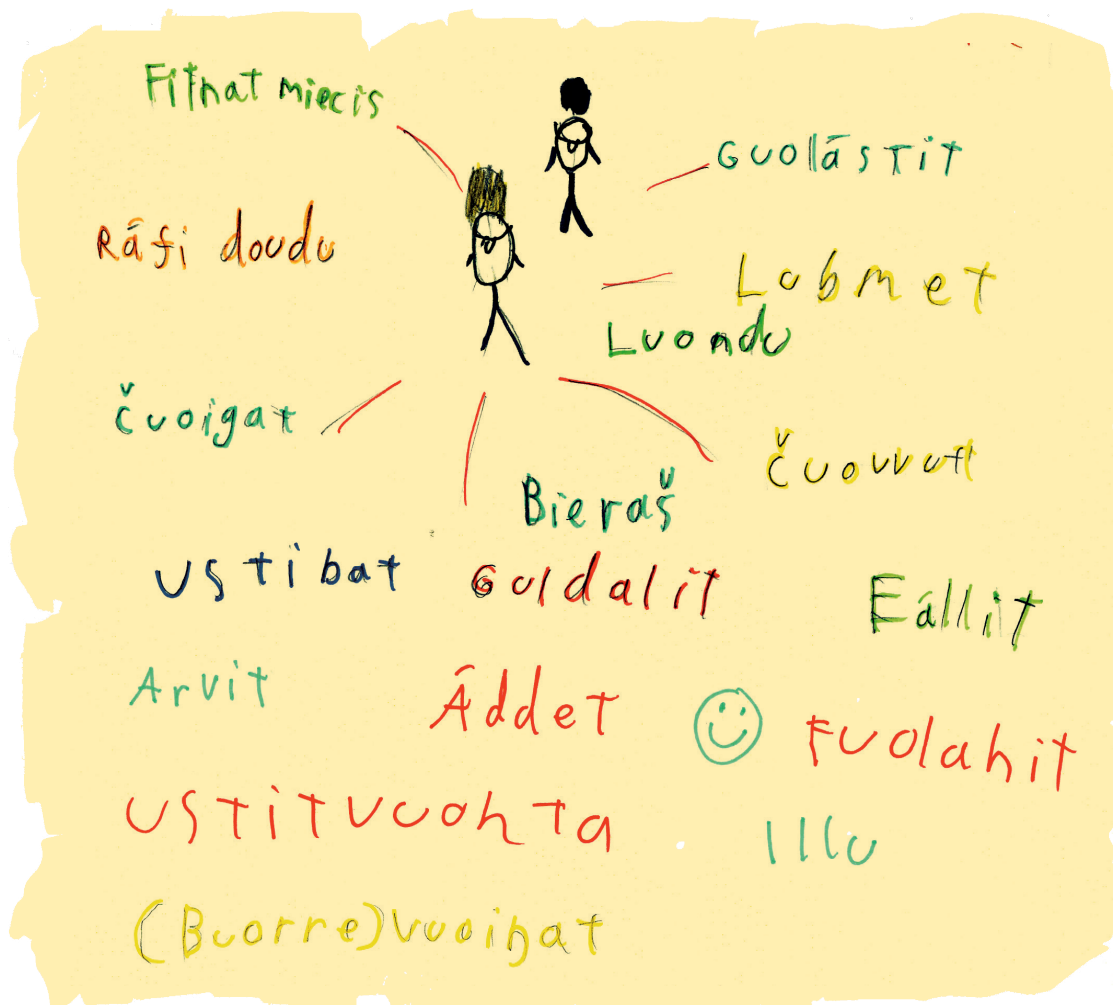 Fitnat miecis
Guolástit
Ráfi doudu
Lubmet
Luondu
Čuoigat
Čuovvut
Bieraš
Ustibat
Guldalit
Eállit
Arvit
Áddet
Fuolahit
Ustitvuohta
Illu
(Buorre)vuoiŋat